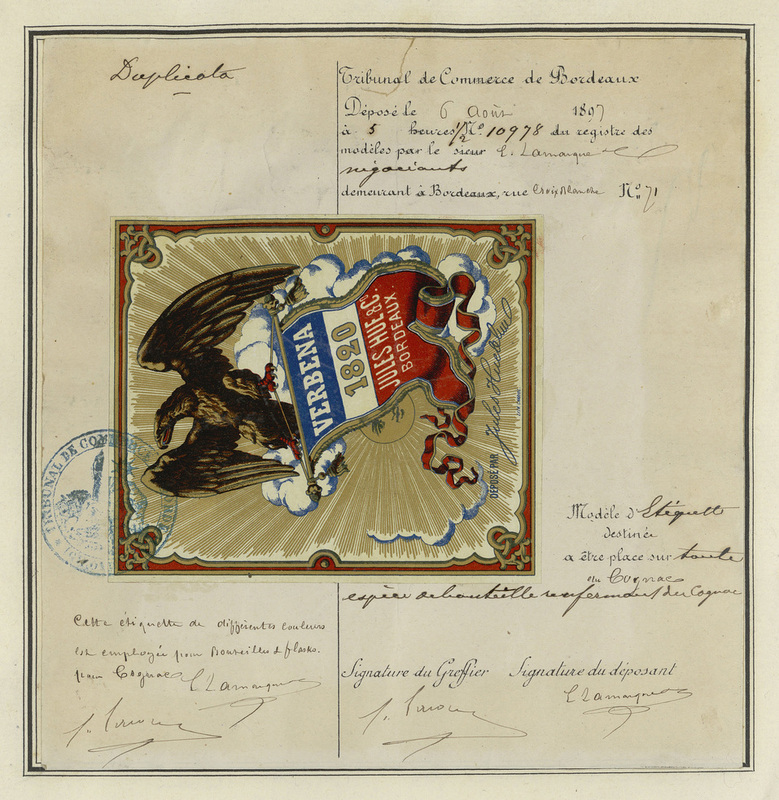 Duplicata
Tribunal de Commerce de Bordeaux
Déposé le 6 Août 1897
à 5 heures 1/2 Nº 10978 du régistre des
modèles par le sieur E. Lamarque
négociants
demeurant à Bordeaux, rue Croix Blanche Nº 71
VERBENA
1820
JULES HUE & Cº
BORDEAUX
DÉPOSÉ PAR
Jules Hue & C
TRIBUNAL DE COMMERCE
Modèle d'Etiquette
destinée
a être place sur toute
du Cognac
espèce de bouteille renfermant du Cognac
Cette étiquette de différentes couleurs
est employée pour Bouteilles & flasks.
pour Cognac E Lamarque
Signature du Greffier Signature du déposant
E Lamarque